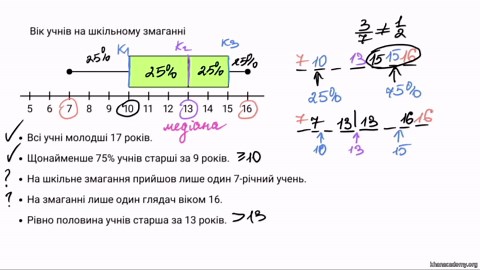 Вік учнів на шкільному змаганні
25% К1 К2 К3 25%
25% 25%
5 6 7 8 9 10 11 12 13 14 15 16
медіана
✓ • Всі учні молодші 17 років.
✓ • Щонайменше 75% учнів старші за 9 років. ≥10
? • На шкільне змагання прийшов лише один 7-річний учень.
? • На змаганні лише один глядач віком 16.
• Рівно половина учнів старша за 13 років. >13
3/7 ≠ 1/2
7 10 _ 13 15 15 16
25% 75%
7 7 _ 13 | 13 _ 16 16
10 13 15
khanacademy.org